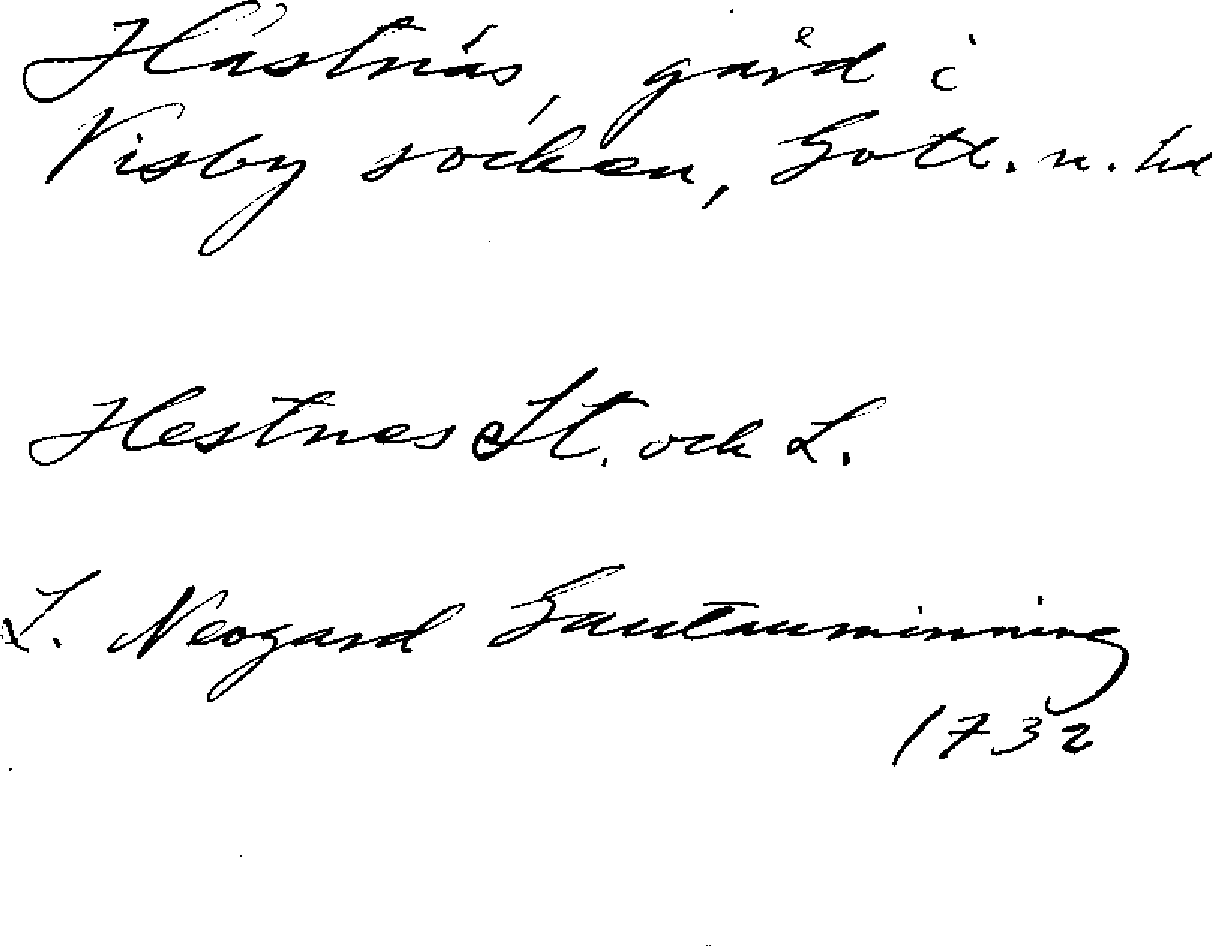 Hästnäs, gård i
Visby socken, Gotl. n. hd
Hestnes St. och L.
L. Neogard Gautauminning
1732